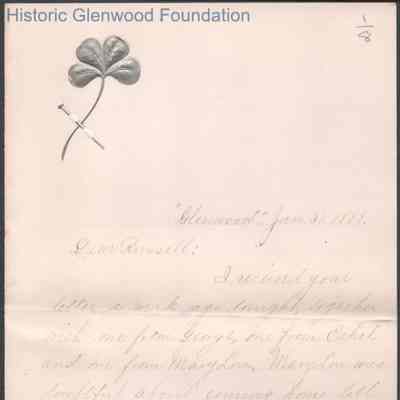 Historic Glenwood Foundation
1/8
"Glenwood," Jan. 31, 1889.
Dear Russell:
I received your
letter a week ago tonight, together
with one from George, one from Ethel
and one from Mary Lou. Mary Lou was
doubtful about coming home till